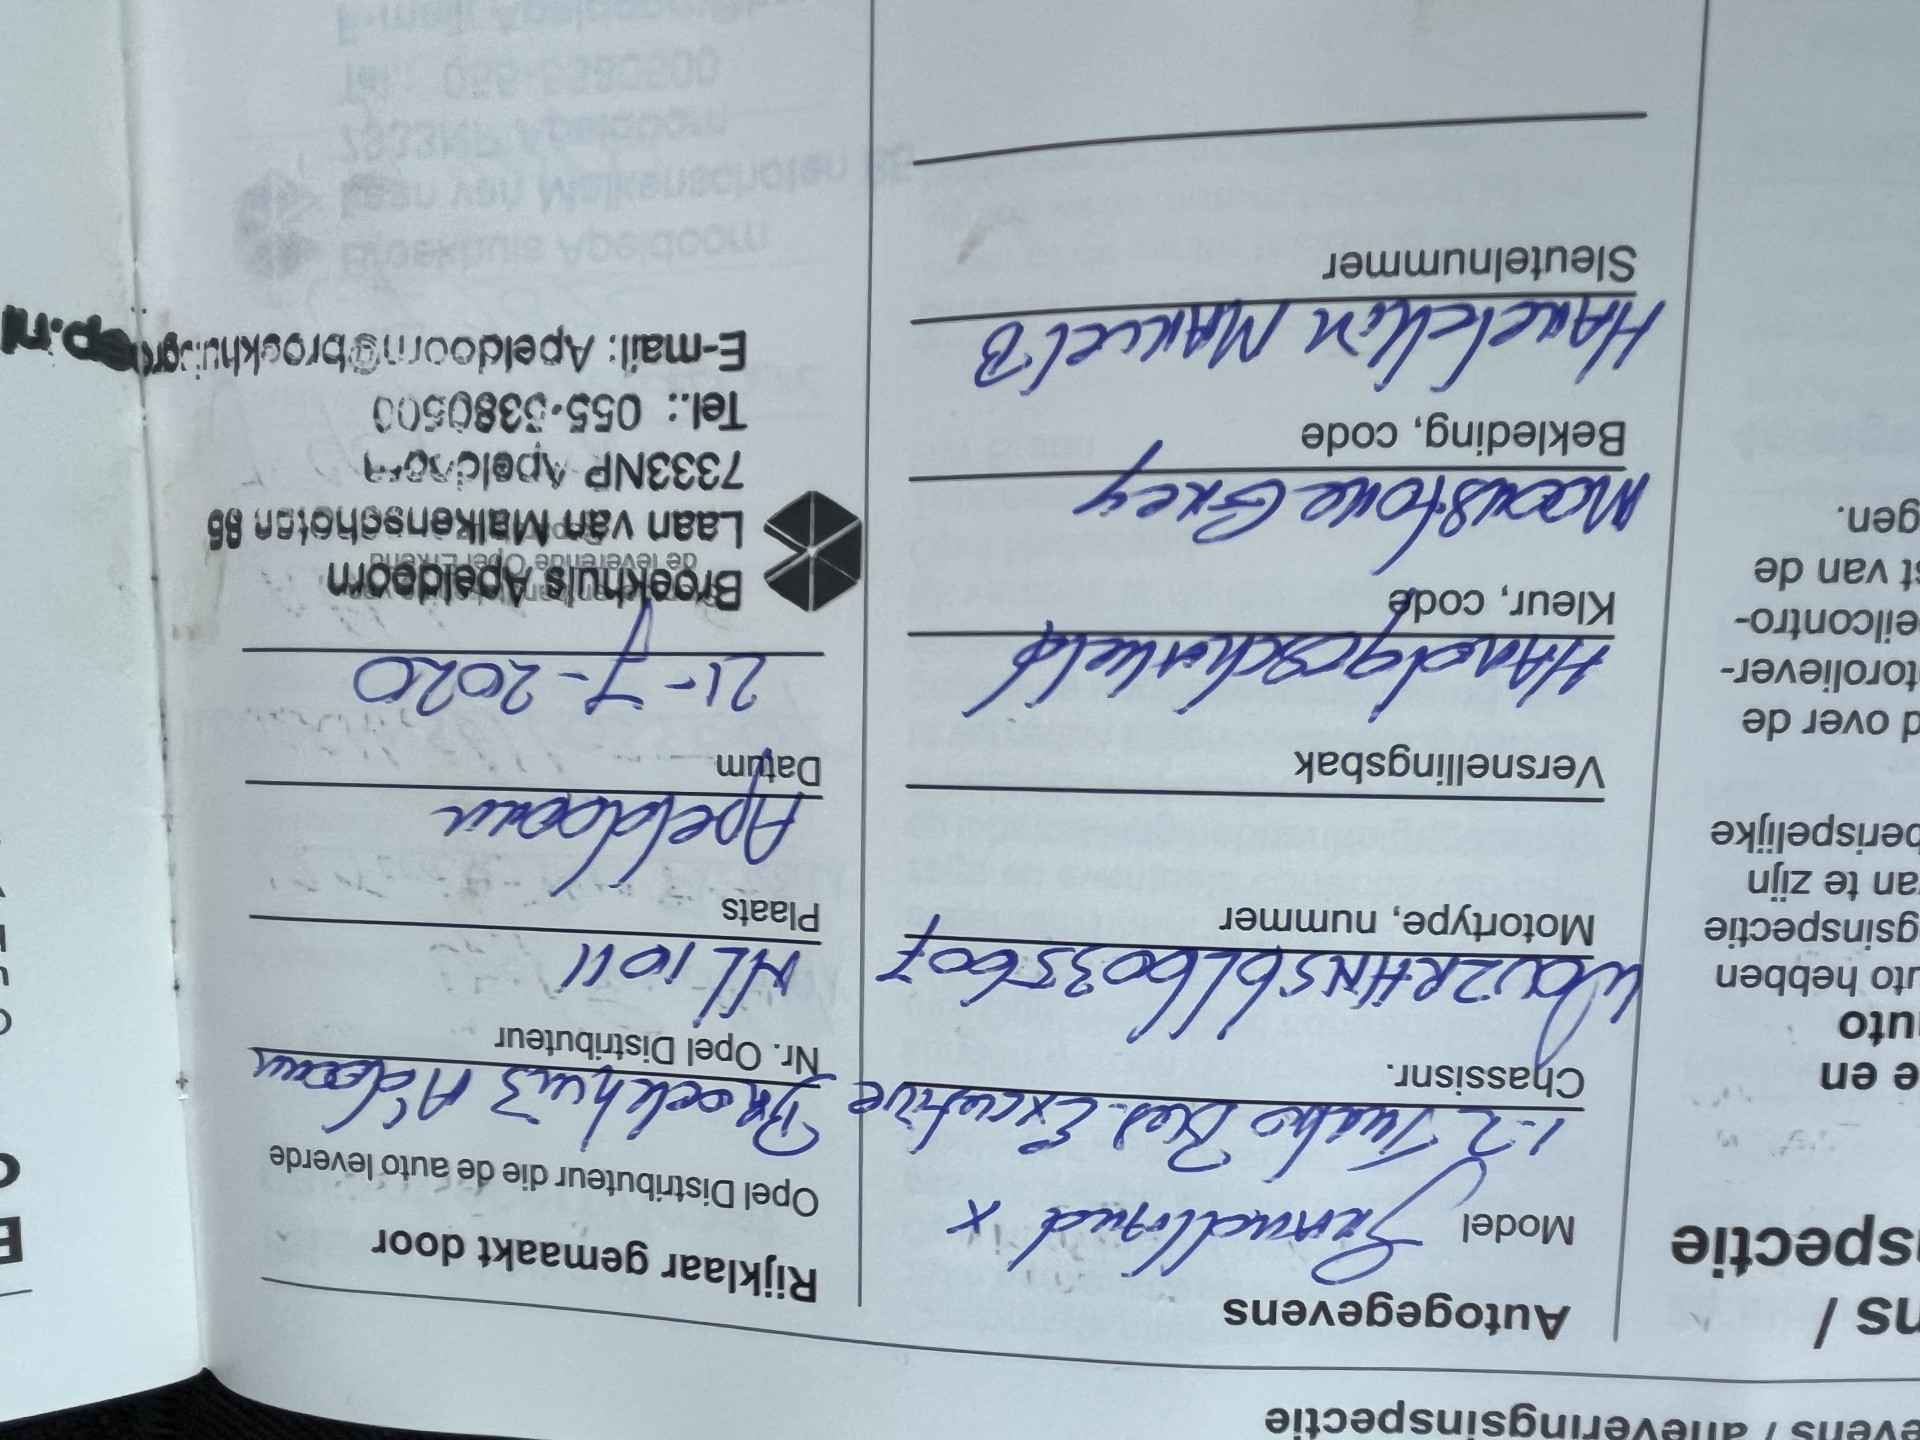 evens / afleveringsinspectie
ns /
nspectie
e en
uto
uto hebben
gsinspectie
an te zijn
perispelijke
d over de
toroliever-
eilcontro-
st van de
gen.
Autogegevens
Model Grandland X
1-2 Turbo Bus. Executive
Chassisnr.
W0VZRHNS6L6035607
Motortype, nummer
Versnellingsbak
Handgeschakeld
Kleur, code
Moonstone Grey
Bekleding, code
Sleutelnummer
Rijklaar gemaakt door
Opel Distributeur die de auto leverde
Broekhuis A'doorn
Nr. Opel Distributeur
NL1011
Plaats
Apeldoorn
Datum
21-7-2020
de leverende Opel Erkend
Broekhuis Apeldoorn
Laan van Malkenschoten 86
7333NP Apeldoorn
Tel.: 055-5380500
E-mail: Apeldoorn@broekhuisgroep.nl